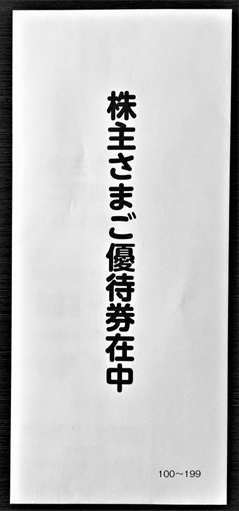 株主さまご優待券在中
100～199